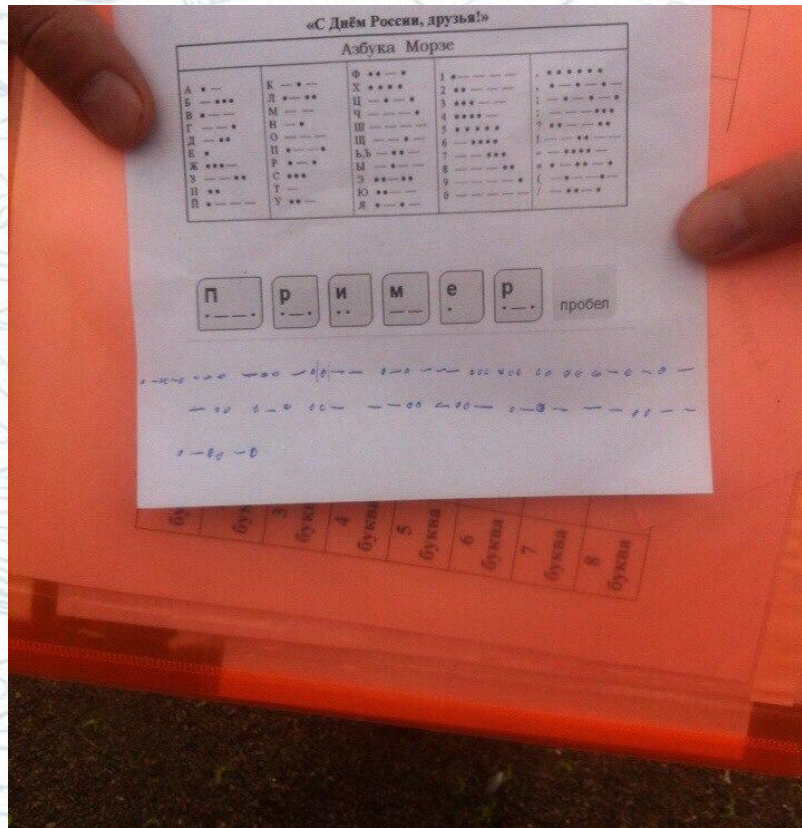 «С Днём России, друзья!»
Азбука Морзе
А • —
Б — • • •
В • — —
Г — — •
Д — • •
Е •
Ж • • • —
З — — • •
И • •
К — • —
Л • — • •
М — —
Н — •
О — — —
П • — — •
Р • — •
С • • •
Т —
У • • —
Ф • • — •
Х • • • •
Ц — • — •
Ч — — — •
Ш — — — —
Щ — — • —
Ь,Ъ — • • —
Ы — • — —
Э • • — • •
Ю • • — —
Я • — • —
1 • — — — —
2 • • — — —
3 • • • — —
4 • • • • —
5 • • • • •
6 — • • • •
7 — — • • •
8 — — — • •
9 — — — — •
0 — — — — —
П р и м е р пробел
• — — • • — • • • — — • • — •
3 4 5 6 7 8
буква буква буква буква буква